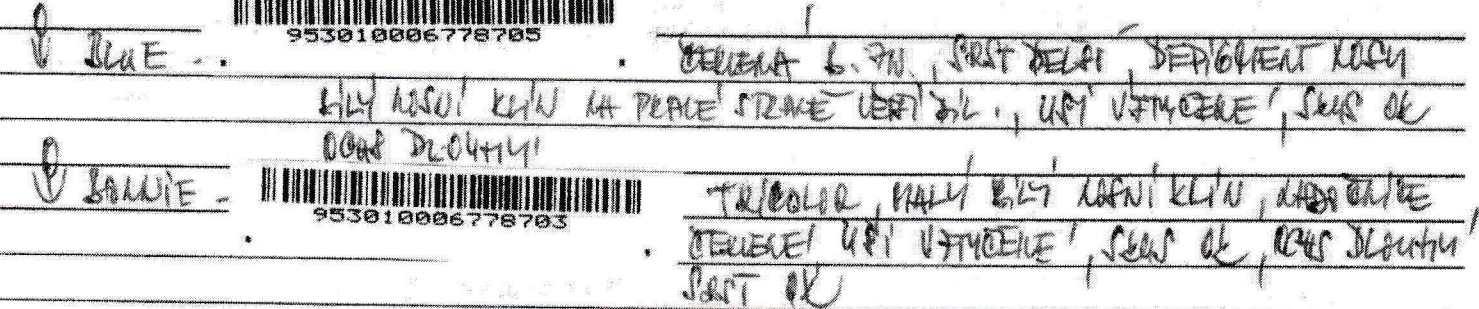 BLUE - .
953010006778705
. ČERVENÁ S B. ZN., SRST DELŠÍ, DEPIGMENT NOSU
BÍLÝ NOSNÍ KLÍN NA PRAVÉ STRANĚ VĚTŠÍ BÍL., UŠI VZTYČENÉ, SKUS OK
OCAS DLOUHÝ
BONNIE -
953010006778703
TRICOLOR, MALÝ BÍLÝ NOSNÍ KLÍN, NADOČNICE
. ČERVENÉ UŠI VZTYČENÉ, SKUS OK, OCAS DLOUHÝ,
SRST OK